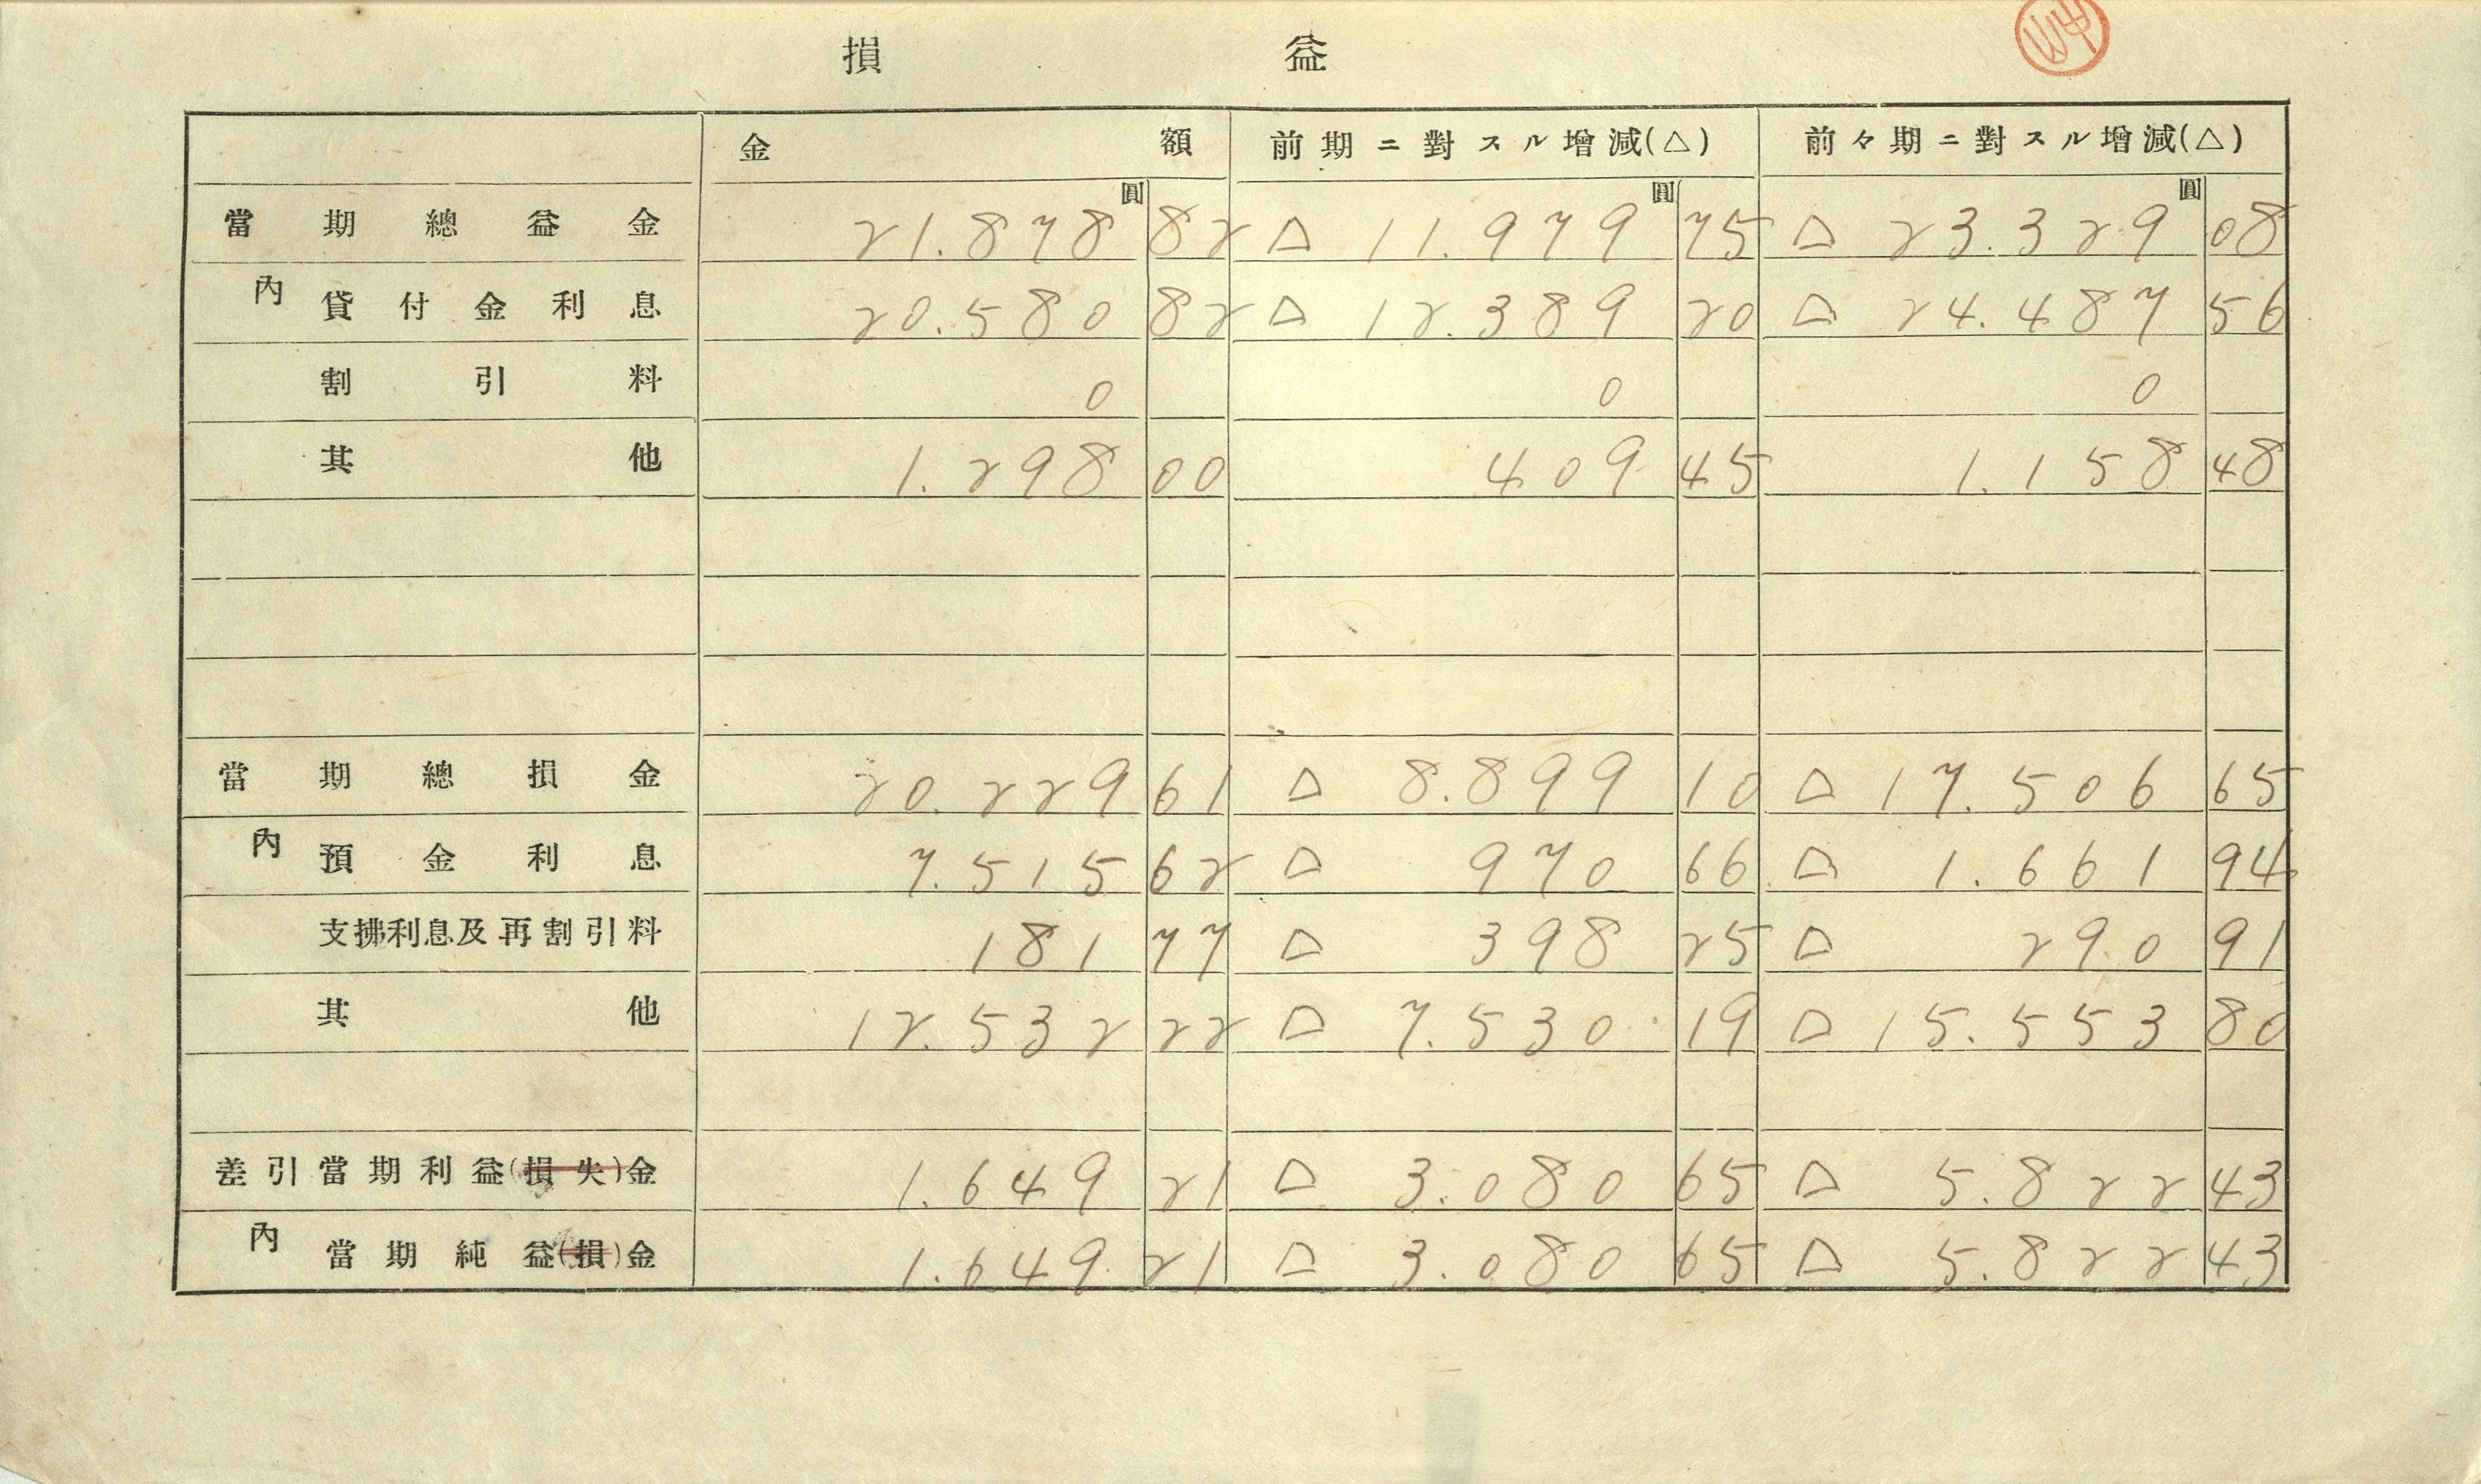 損 益
金 額 前期ニ對スル增減(△) 前々期ニ對スル增減(△)
圓 圓 圓
當期總益金 21.878 82 △ 11.979 75 △ 23.329 08
內 貸付金利息 20.580 82 △ 12.389 20 △ 24.487 56
割引料 0 0 0
其他 1.298 00 409 45 1.158 48
當期總損金 20.229 61 △ 8.899 10 △ 17.506 65
內 預金利息 7.515 62 △ 970 66 △ 1.661 94
支拂利息及再割引料 181 77 △ 398 25 △ 290 91
其他 12.532 22 △ 7.530 19 △ 15.553 80
差引當期利益(損失)金 1.649 21 △ 3.080 65 △ 5.822 43
內 當期純益(損)金 1.649 21 △ 3.080 65 △ 5.822 43